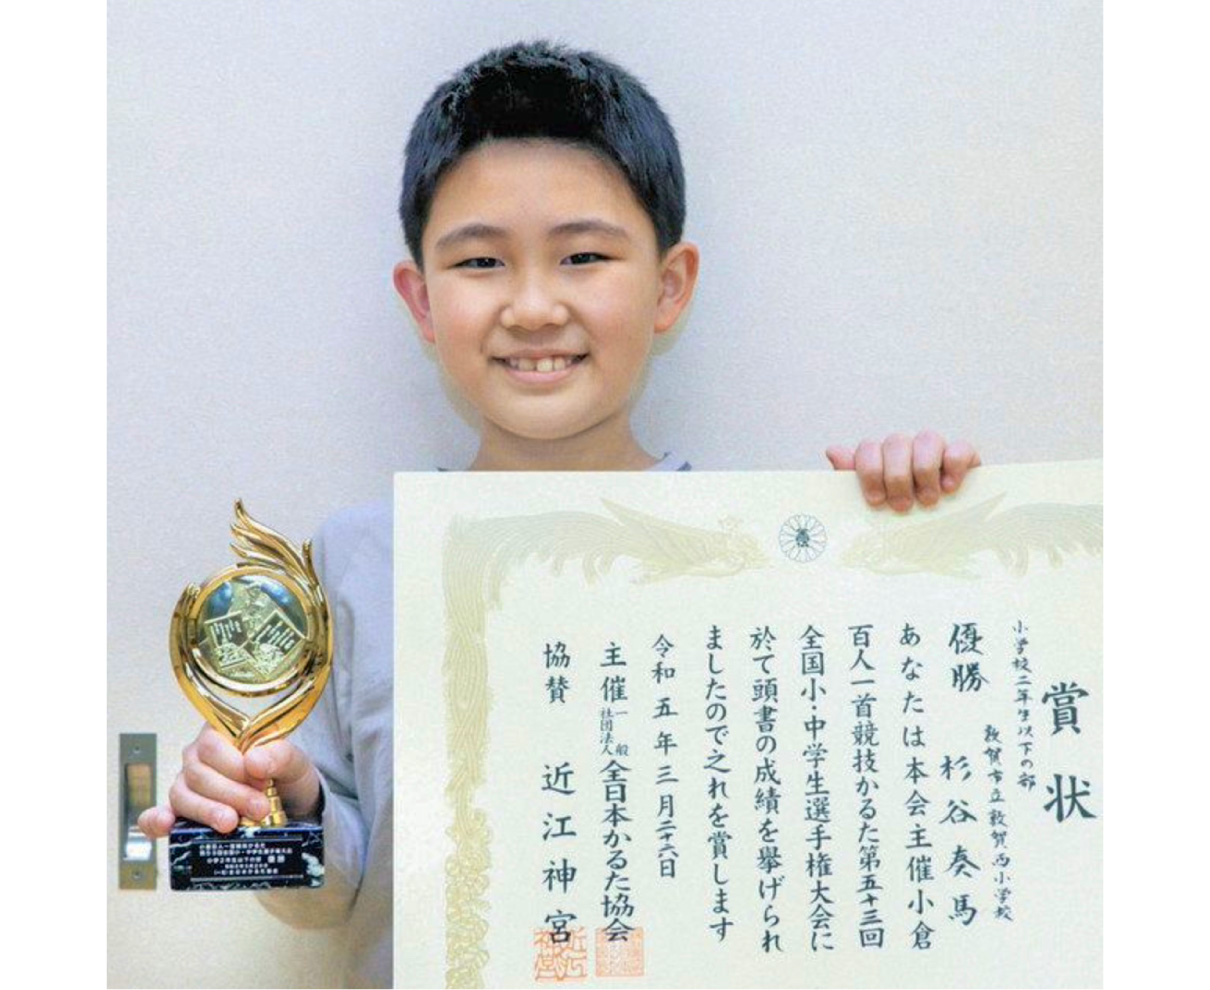 賞状
小学校二年生以下の部
敦賀市立敦賀西小学校
優勝 杉谷奏馬
あなたは本会主催小倉
百人一首競技かるた第五十三回
全国小・中学生選手権大会に
於て頭書の成績を挙げられ
ましたので之れを賞します
令和五年三月二十六日
主催 一般社団法人 全日本かるた協会
協賛 近江神宮
優勝